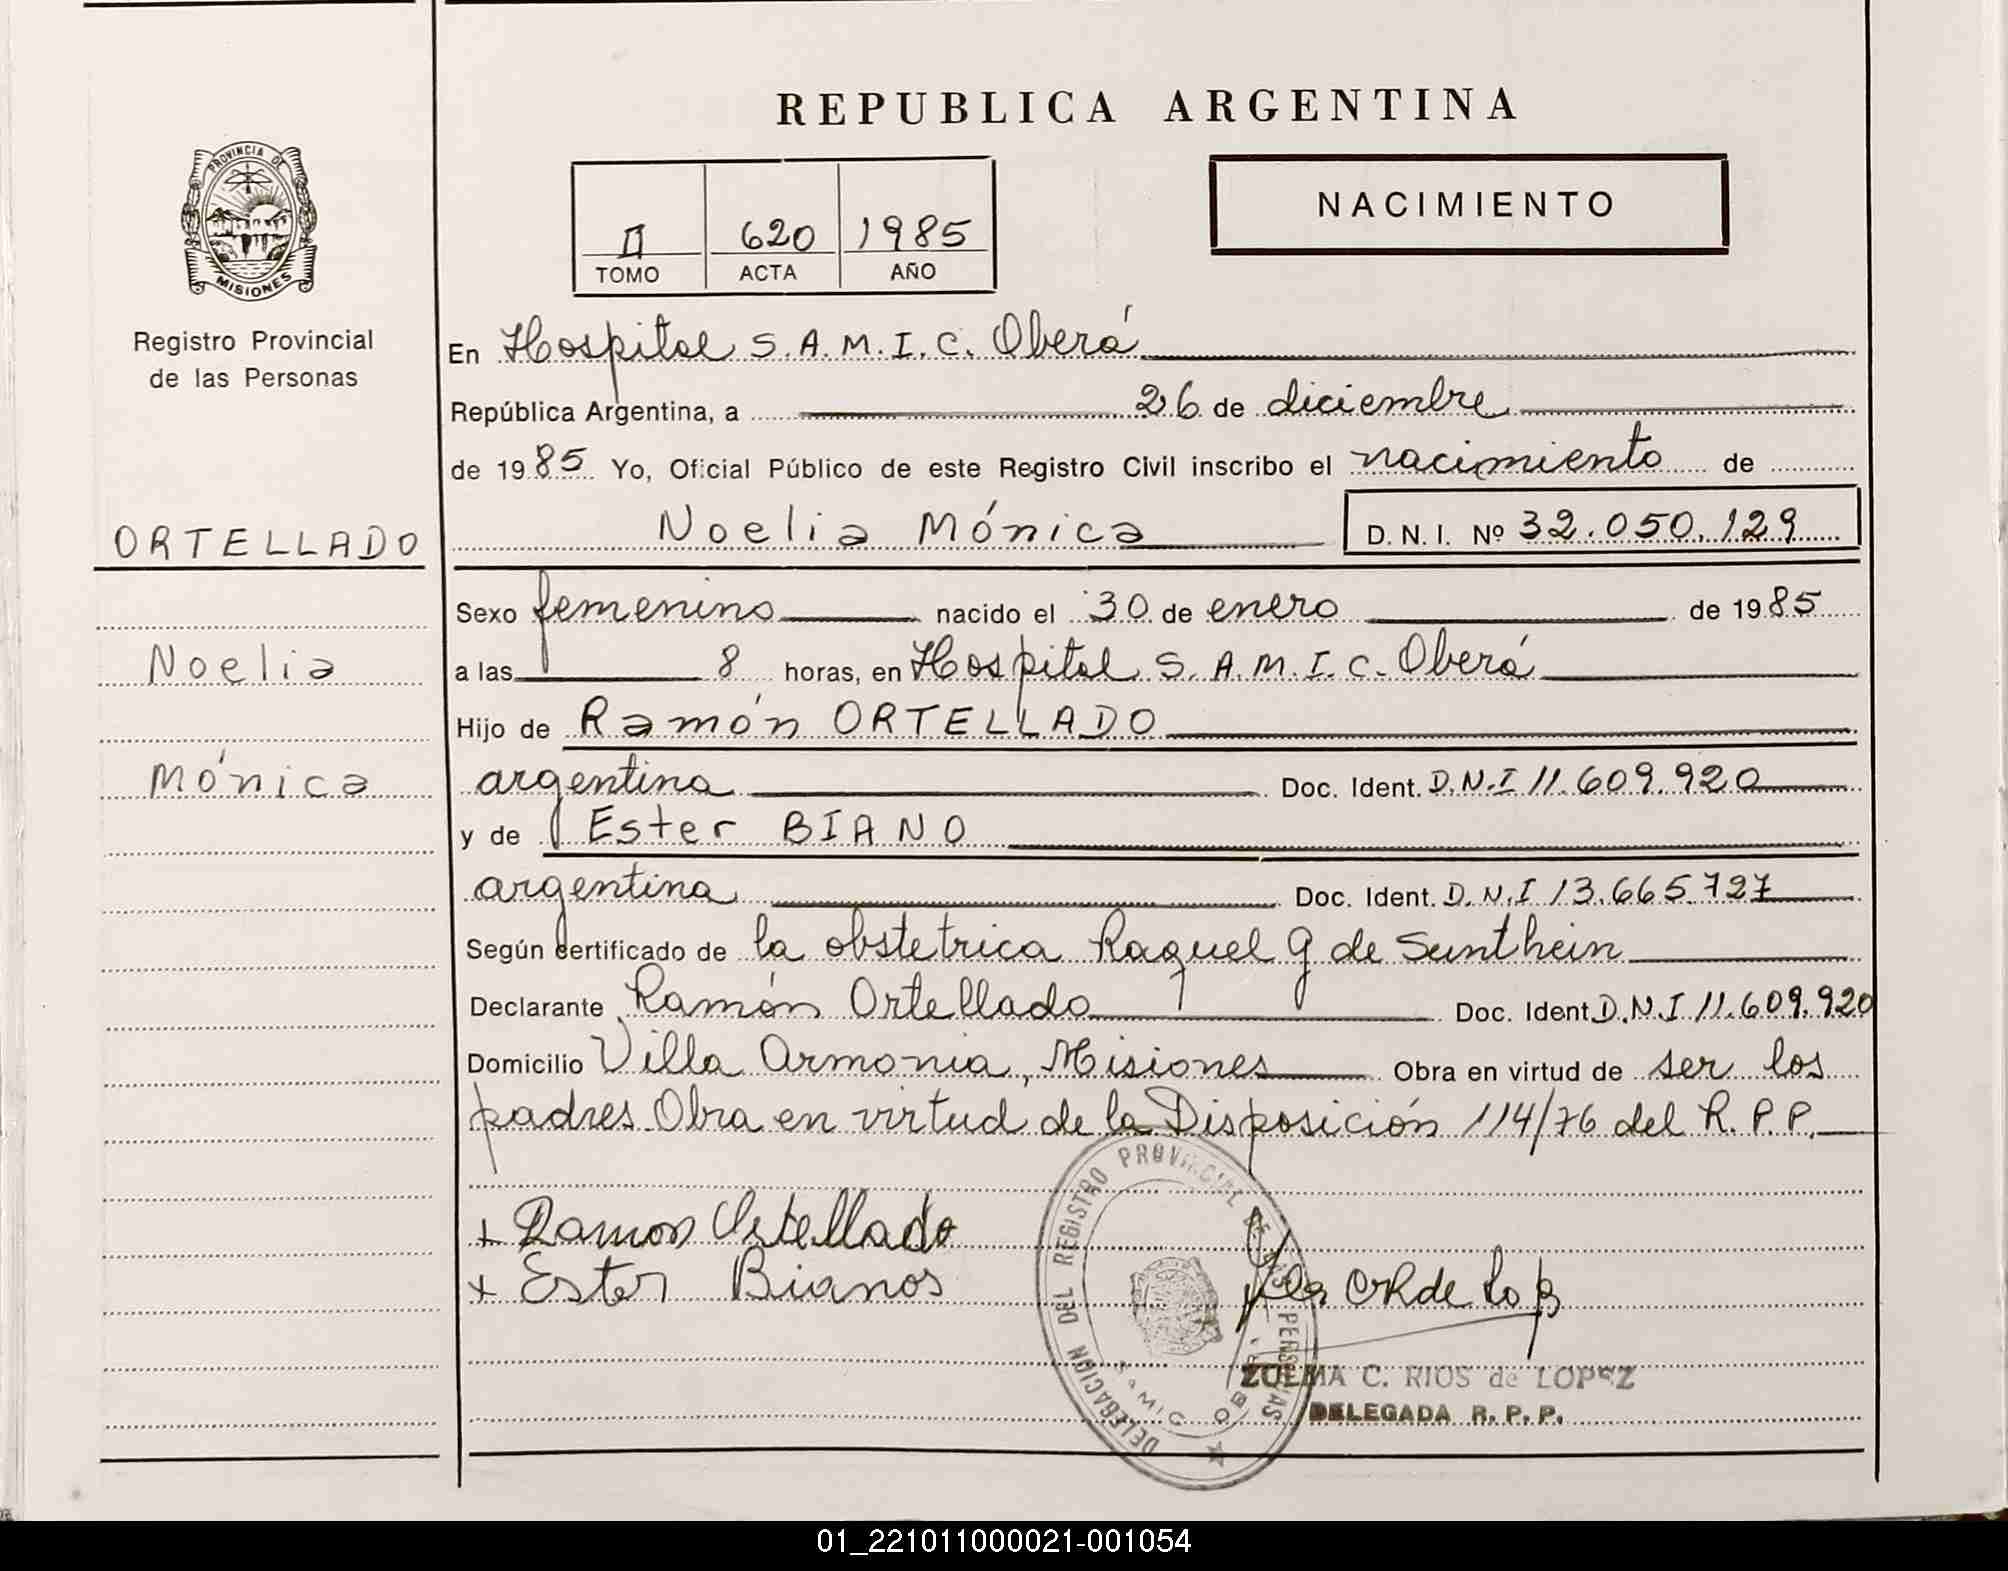 REPUBLICA ARGENTINA
PROVINCIA DE
MISIONES
Registro Provincial
de las Personas
ORTELLADO
Noelia
Mónica
II 620 1985
TOMO ACTA AÑO
NACIMIENTO
En Hospital S.A.M.I.C. Oberá
República Argentina, a 26 de diciembre
de 1985 Yo, Oficial Público de este Registro Civil inscribo el nacimiento de
Noelia Mónica D. N. I. Nº 32.050.129
Sexo femenino nacido el 30 de enero de 1985
a las 8 horas, en Hospital S.A.M.I.C. Oberá
Hijo de Ramón ORTELLADO
argentina Doc. Ident. D.N.I 11.609.920
y de Ester BIANO
argentina Doc. Ident. D.N.I 13.665.727
Según certificado de la obstetrica Raquel G de Sunthein
Declarante Ramón Ortellado Doc. Ident D.N.I 11.609.920
Domicilio Villa Armonia, Misiones Obra en virtud de ser los
padres Obra en virtud de la Disposición 114/76 del R.P.P.
+ Ramon Ortellado
+ Ester Bianos
DELEGACION DEL REGISTRO PROVINCIAL DE LAS PERSONAS
SAMIC OBERA
ZULMA C. RIOS de LOPEZ
DELEGADA R. P. P.
01_221011000021-001054